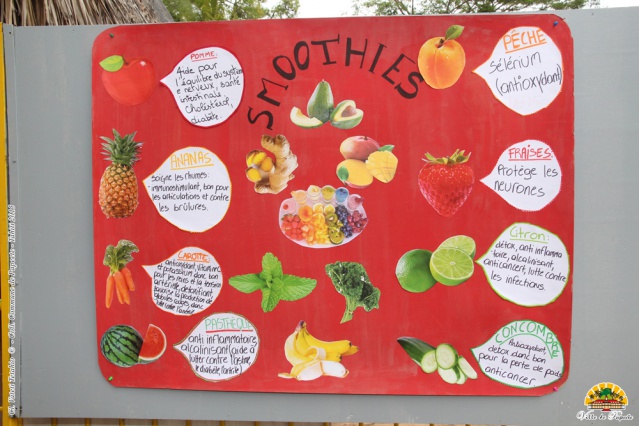 SMOOTHIES
POMME
Aide pour
l'équilibre du système
nerveux, santé
intestinale,
cholestérol,
diabète.
PÊCHE
sélérium
(antioxydant)
ANANAS
soigne les rhumes.
immunostimulant, bon pour
les articulations et contre
les brûlures.
FRAISES
Protège les
neurones
CAROTTE
antioxydant, vitamine C
et potassium donc bon
pour les
artérielle, détoxifiant,
favorise la production de
globules rouges, donc
lutte contre l'anémie
Citron:
détox, anti inflamma
toire, alcalinisant,
anticancer, lutte contre
les infections.
PASTÈQUE
anti inflammatoire,
alcalinisant (aide à
lutter contre l'asthme,
le diabète, l'arthrite)
CONCOMBRE
Antioxydant,
détox donc bon
pour la perte de poids
anticancer
Ville de Papeete